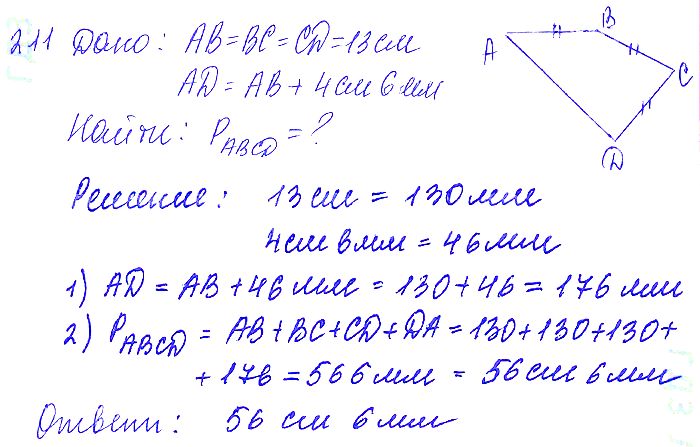 211 Дано: AB=BC=CD=13см
AD=AB+4см 6мм
Найти: P_ABCD=?
A
B
C
D
Решение: 13см = 130мм
4см 6мм = 46мм
1) AD = AB+46мм = 130+46 = 176мм
2) P_ABCD = AB+BC+CD+DA=130+130+130+
+176=566мм = 56см 6мм
Ответ: 56 см 6мм